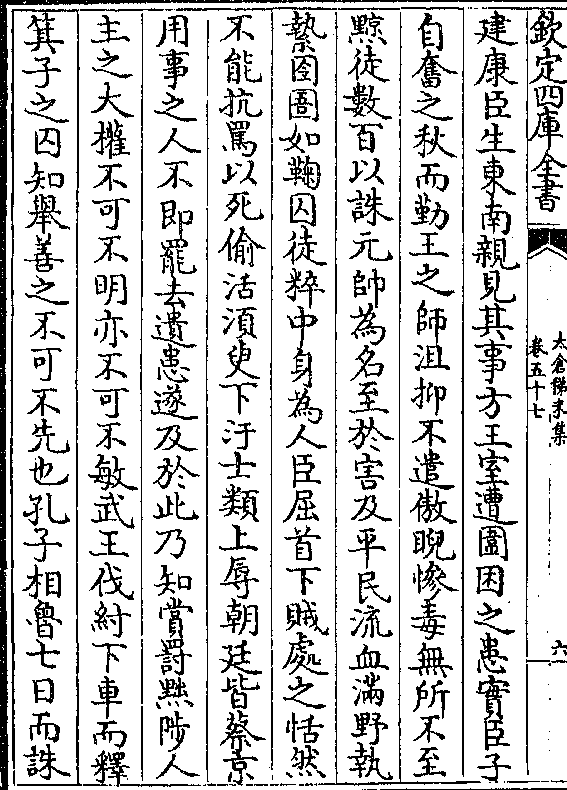 欽定四庫全書
太倉稊米集
卷五十七
六
建康臣生東南親見其事方王室遭圍困之患實臣子
自奮之秋而勤王之師沮抑不遣傲睨慘毒無所不至
黥徒數百以誅元帥為名至於害及平民流血滿野執
縶囹圄如鞠囚徒粹中身為人臣屈首下賊處之恬然
不能抗罵以死偷活須臾下汙士類上辱朝廷皆蔡京
用事之人不即罷去遺患遂及於此乃知賞罰黜陟人
主之大權不可不明亦不可不敏武王伐紂下車而釋
箕子之囚知舉善之不可不先也孔子相魯七日而誅